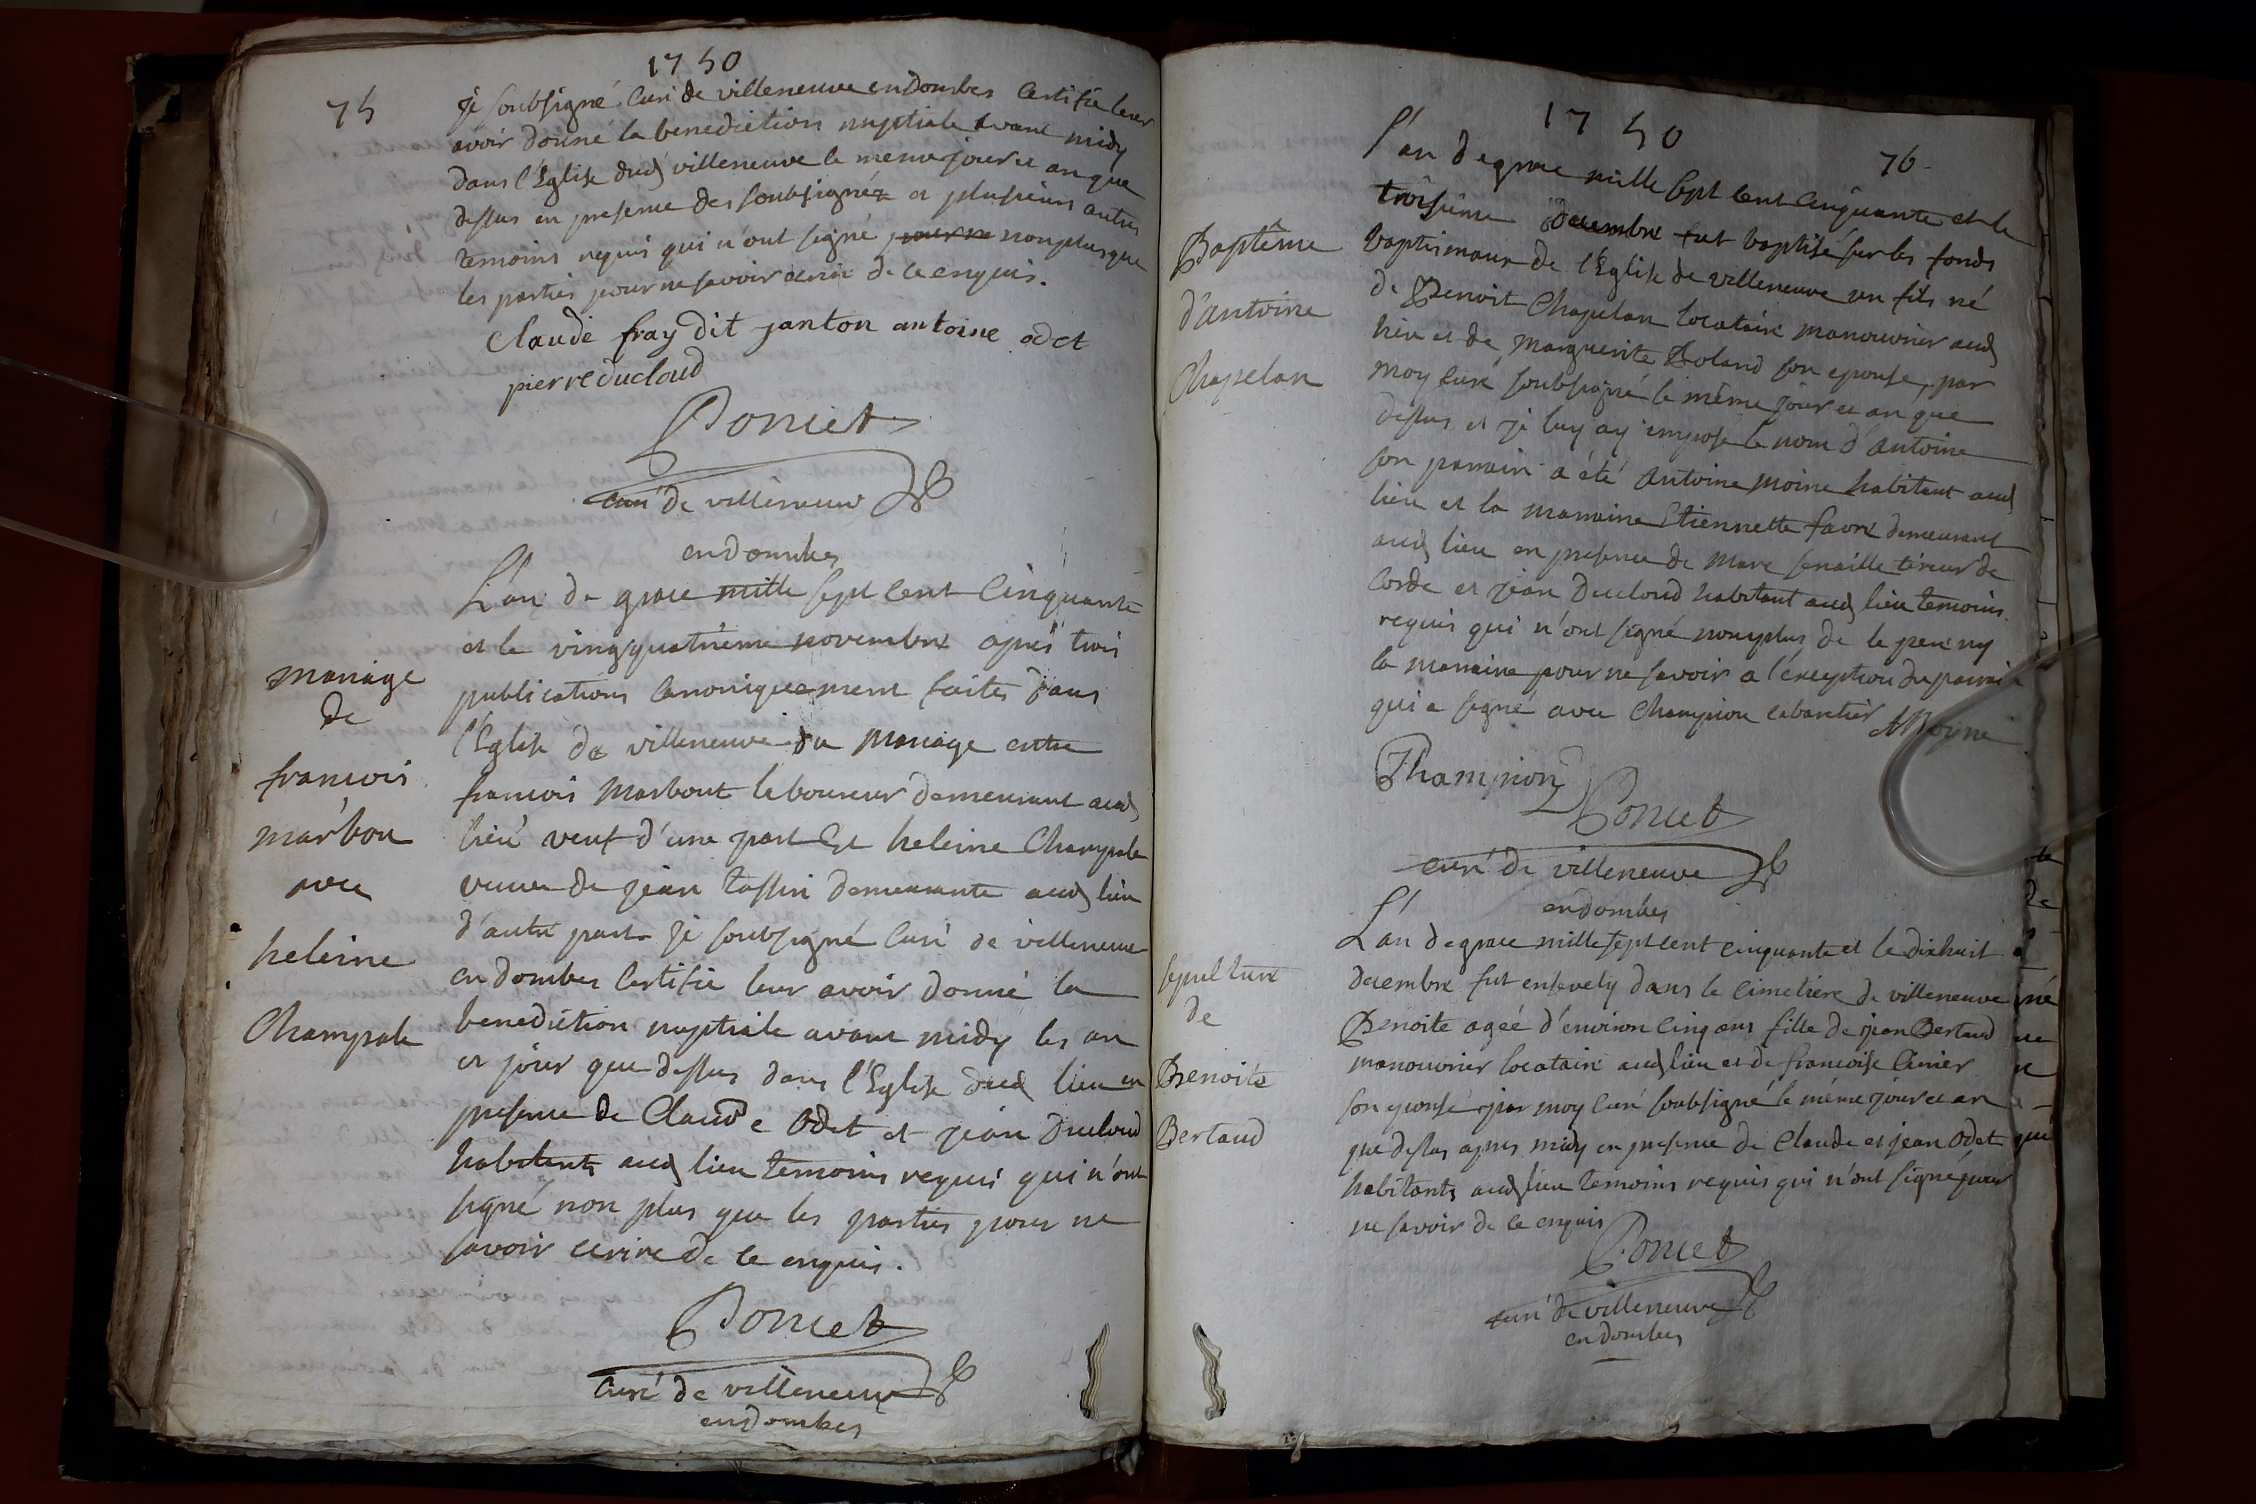 1750
75
je soubsigné Curé de villeneuve en Dombes Certifie leur
avoir donné la benediction nuptiale avant midy
dans l'Eglise dud villeneuve le meme jour et an que
dessus en presence des soubsignéz et plusieurs autres
temoins requis qui n'ont signé pour ne non plus que
les parties pour ne savoir ecrire de ce enquis.
Claude fray dit janton antoine odet
pierre ducloud
Poncet
curé de villeneuve
en dombes
L'an de grace mille sept cent Cinquante
et le vingquatrieme novembre aprés trois
publications Canoniquement faites dans
l'Eglise de villeneuve du Mariage entre
francois Marbout laboureur demeurant aud
lieu veuf d'une part Et heleine Champale
veuve de jean tassin demeurante aud lieu
d'autre part je soubsigné Curé de villeneuve
en dombes Certifie leur avoir donné la
benediction nuptiale avant midy les an
et jour que dessus dans l'Eglise dud lieu en
presence de Claude Odet et jean Ducloud
habitants aud lieu temoins requis qui n'ont
signé non plus que les parties pour ne
savoir ecrire de ce enquis.
Poncet
Curé de villeneuve
en dombes
mariage
de
francois
marbou
avec
heleine
Champale
1750
76
l'an de grace mille sept cent Cinquante et le
troisieme decembre fut baptisé sur les fonds
baptismaux de l'Eglise de villeneuve un fils né
de Benoit Chapelan locataire manouvrier aud
lieu et de Marguerite Roland son epouse, par
moy Curé soubsigné le même jour et an que
dessus et je luy ay imposé le nom d'antoine
son parrain a été Antoine Moine habitant aud
lieu et la marraine Etiennette favre demeurant
aud lieu en presence de Marc senaille tireur de
Corde et jean Ducloud habitant aud lieu temoins
requis qui n'ont signé non plus de le pere ny
la marraine pour ne savoir a l'exception du parrain
qui a signé avec Champion cabaretier AMoyne
Champion
Poncet
curé de villeneuve
en dombes
Baptême
d'antoine
Chapelan
L'an de grace mille sept cent cinquante et le dixhuit
decembre fut ensevely dans le Cimetière de villeneuve
Benoite ageé d'environ Cinq ans fille de jean Bertaud
manouvrier locataire aud lieu et de francoise Cinier
son epouse par moy Curé soubsigné le même jour et an
que dessus apres midy en presence de Claude et jean Odet
habitants aud lieu temoins requis qui n'ont signé pour
ne savoir de ce enquis
Poncet
curé de villeneuve
en dombes
sepulture
de
Benoite
Bertaud